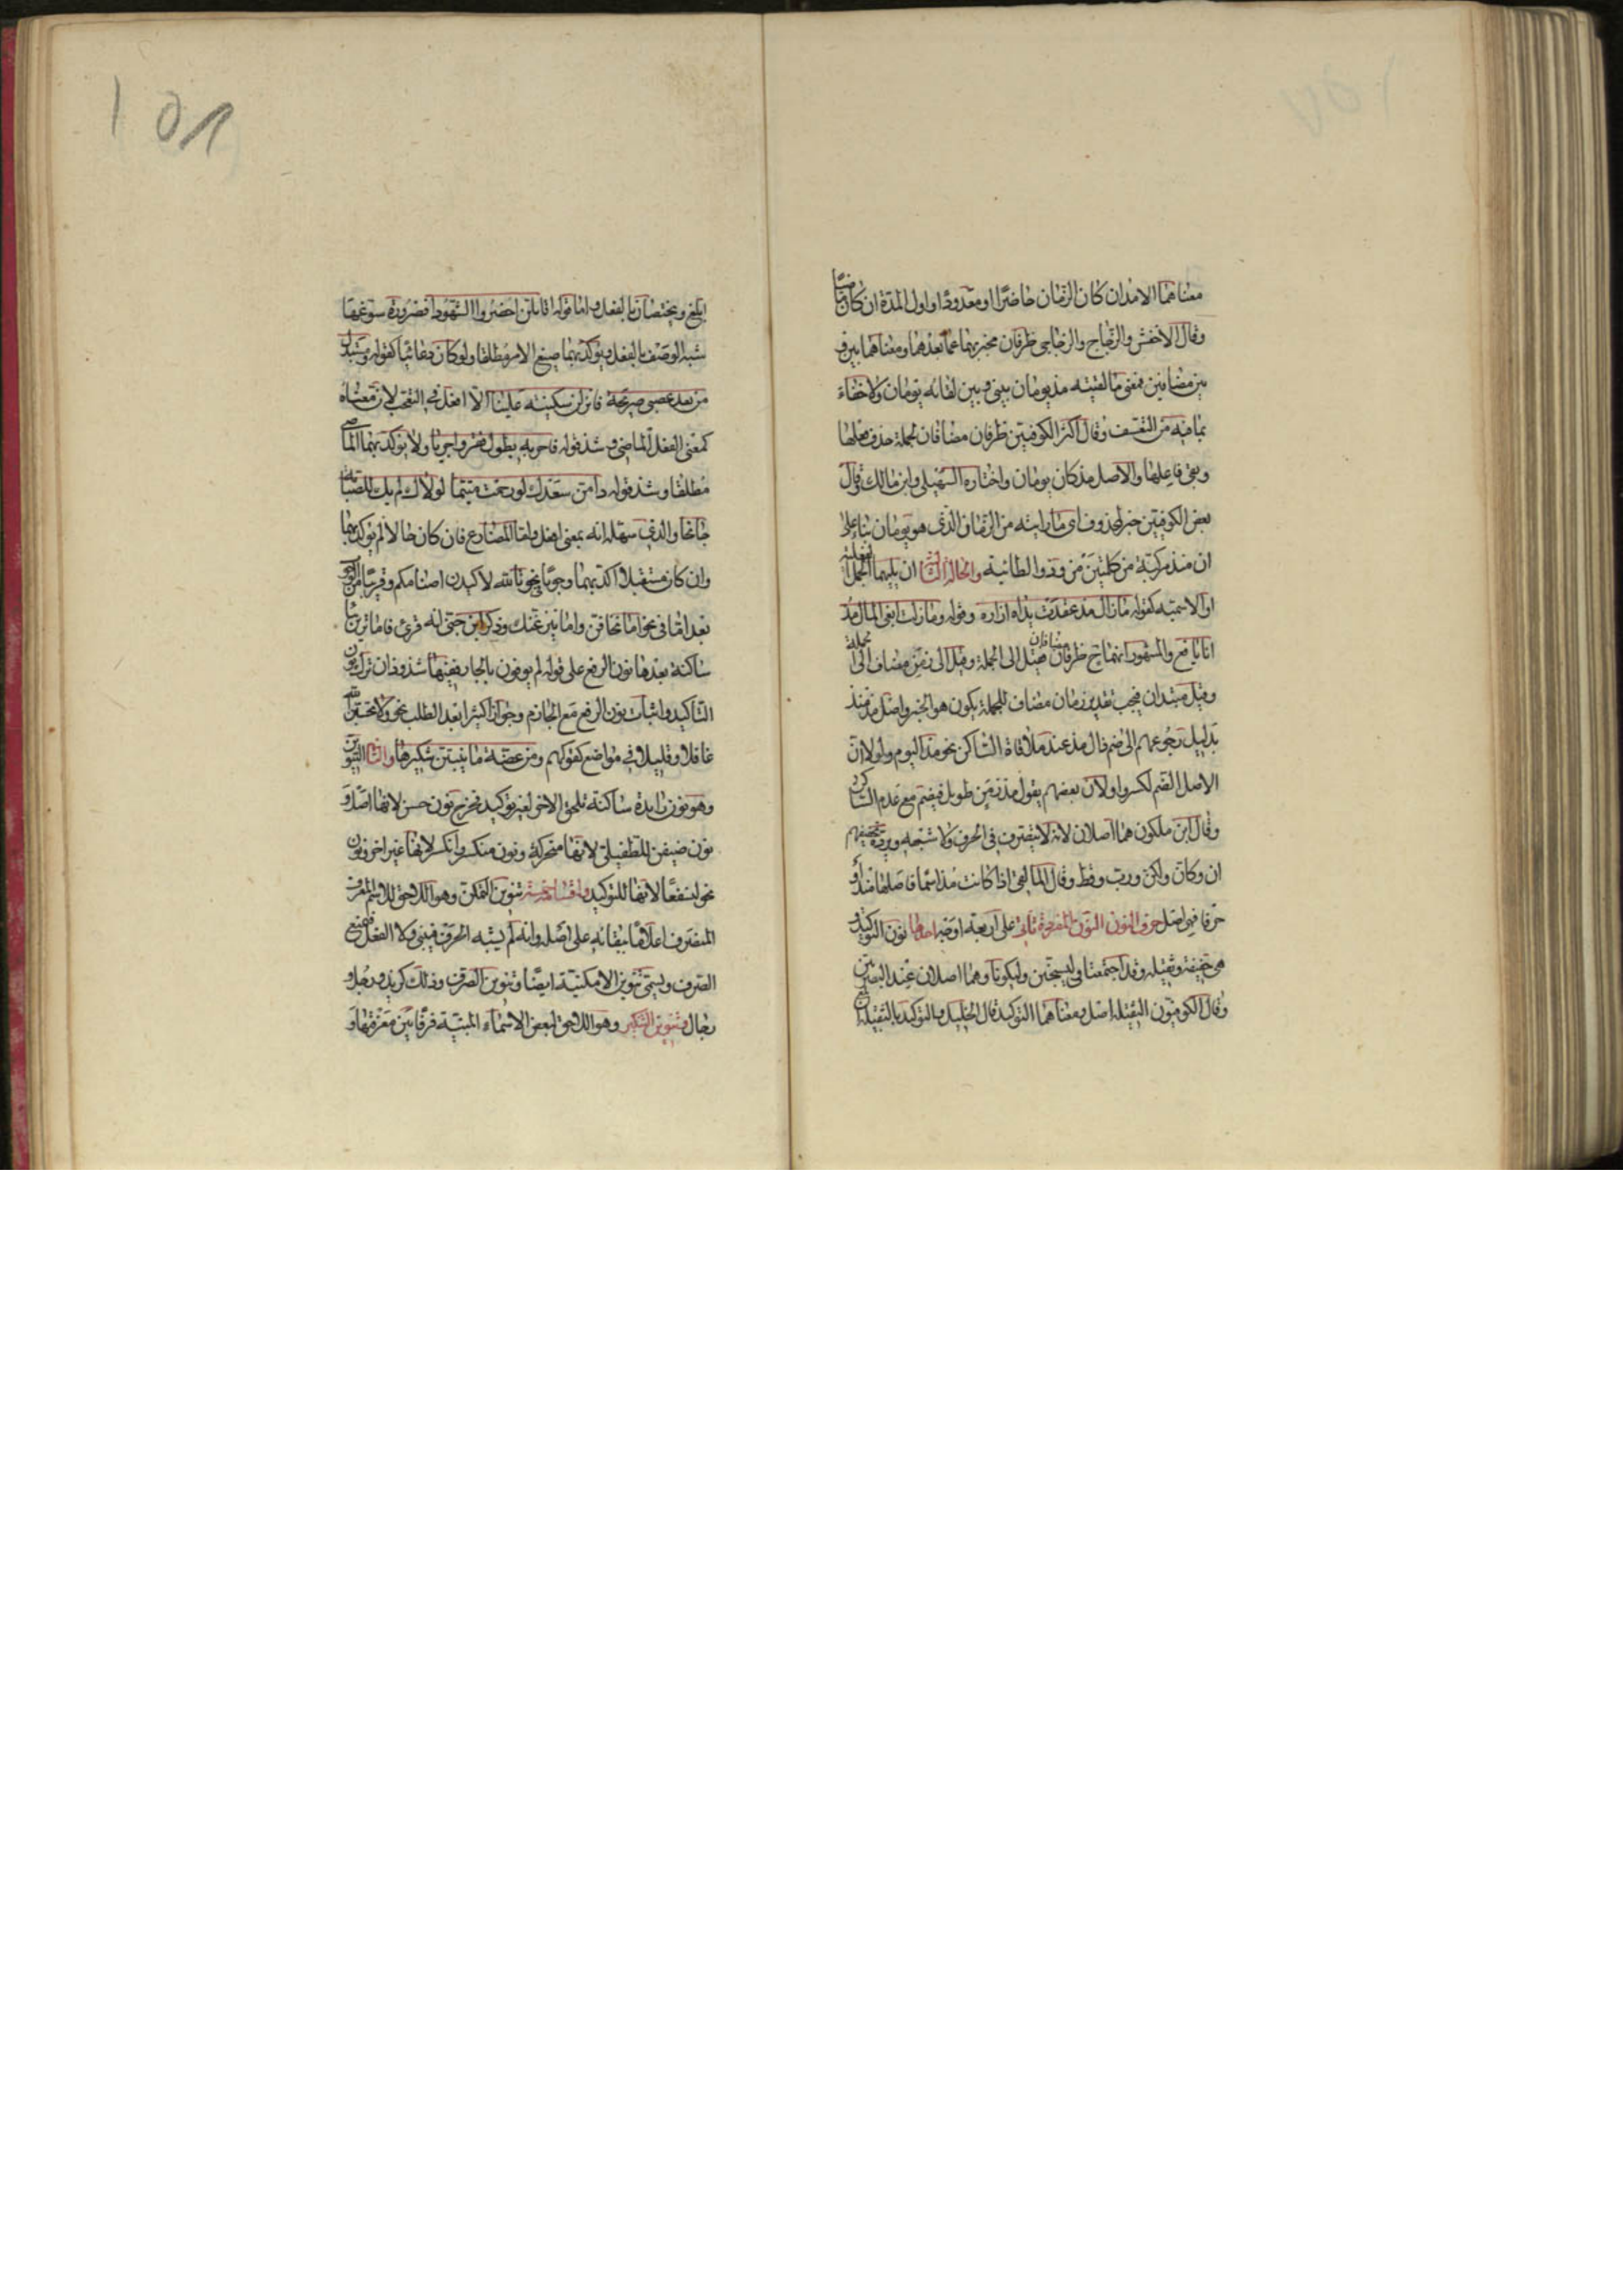 معناهما الامدان كان الزمان حاضرا او معدودا واول المدة ان كان ماضيا
وقال الاخفش والزجاج والزجاجى ظرفان مخبر بهما عما بعدهما ومعناهما بين و
بين مضافين فمعنى ما لقيته مذ يومان بينى وبين لقائه يومان ولا خفاء
بما فيه من التعسف وقال اكثر الكوفيين ظرفان مضافان لجملة حذف فعلها
وبقى فاعلها والاصل مذ كان يومان واختاره السهيلى وابن مالك وقال
بعض الكوفيين خبر لمحذوف اى ما رايته من الزمان الذى هو يومان بناء على
ان منذ مركبة من كلمتين من وذو الطائية والحالة الثالثة ان يليهما الجمل الفعلية
او الاسمية كقوله ما زال مذ عقدت يداه ازاره وقوله وما زلت ابغى المال مذ
انا يافع والمشهور انهما ح ظرفان مضافان فقيل الى الجملة وقيل الى زمن مضاف الى الجملة
وقيل مبتدان فيجب تقدير زمان مضاف للجملة يكون هو الخبر واصل مذ منذ
بدليل رجوعهم الى ضم ذال مذ عند ملاقاة الساكن نحو مذ اليوم ولولا ان
الاصل الضم لكسروا ولان بعضهم يقول مذ زمن طويل فيضم مع عدم الساكن
وقال ابن ملكون هما اصلان لانه لا يتصرف فى الحرف ولا شبهه ويرده تخفيفهم
ان وكان ولكن ورب وقط وقال المالقى اذا كانت مذ اسما فاصلها منذ او
حرفا فهى اصل حرف النون النون المفردة تاتى على اربعة اوجه احدها نون التوكيد و
هى خفيفة وثقيلة وقد اجتمعتا فى ليسجنن وليكونا وهما اصلان عند البصريين
وقال الكوفيون الثقيلة اصل ومعناهما التوكيد قال الخليل والتوكيد بالثقيلة
ابلغ ويختصان بالفعل واما قوله اقائلن احضروا الشهودا فضرورة سوغها
شبه الوصف بالفعل ويؤكد بهما صيغ الامر مطلقا ولو كان دعائيا كقوله ومستبدل
من بعد غضبى صريمة فانزلن سكينة علينا الا افعل فى التعجب لان معناه
كمعنى الفعل الماضى وشذ قوله فاحر به بطول فقر واحريا ولا يؤكد بهما الماضى
مطلقا وشذ قوله دامن سعدك لو رحمت متيما لولاك لم يك للصبابة
جانحا والذى سهله انه بمعنى افعل واما المضارع فان كان حالا لم يؤكد بهما
وان كان مستقبلا اكد بهما وجوبا فى نحو تالله لاكيدن اصنامكم وقريبا من الوجوب
بعد اما فى نحو اما تخافن واما ينزغنك وذكر ابن جنى انه قرئ فاما ترين بيا
ساكنة بعدها نون الرفع على قوله لم يوفون بالجار ففيها شذوذان ترك نون
التاكيد واثبات نون الرفع مع الجازم وجوازا كثيرا بعد الطلب نحو ولا تحسبن الله
غافلا وقليلا فى مواضع كقولهم ومن عضة ما ينبتن شكيرها والثانى التنوين
وهو نون زايدة ساكنة تلحق الاخر لغير توكيد فخرج نون حسن لانها اصل و
نون ضيفن للطفيلى لانها متحركة ونون منكسر وانكسر لانها غير اخر ونون
نحو لنسفعا لانها للتوكيد واقسامه خمسة تنوين التمكن وهو اللاحق للاسم المعرب
المنصرف اعلاما ببقائه على اصله وانه لم يشبه الحرف فيبنى ولا الفعل فيمنع
الصرف ويسمى تنوين الامكنية ايضا وتنوين الصرف وذلك كزيد ورجل و
رجال وتنوين التنكير وهو اللاحق لبعض الاسماء المبنية فرقا بين معرفتها و